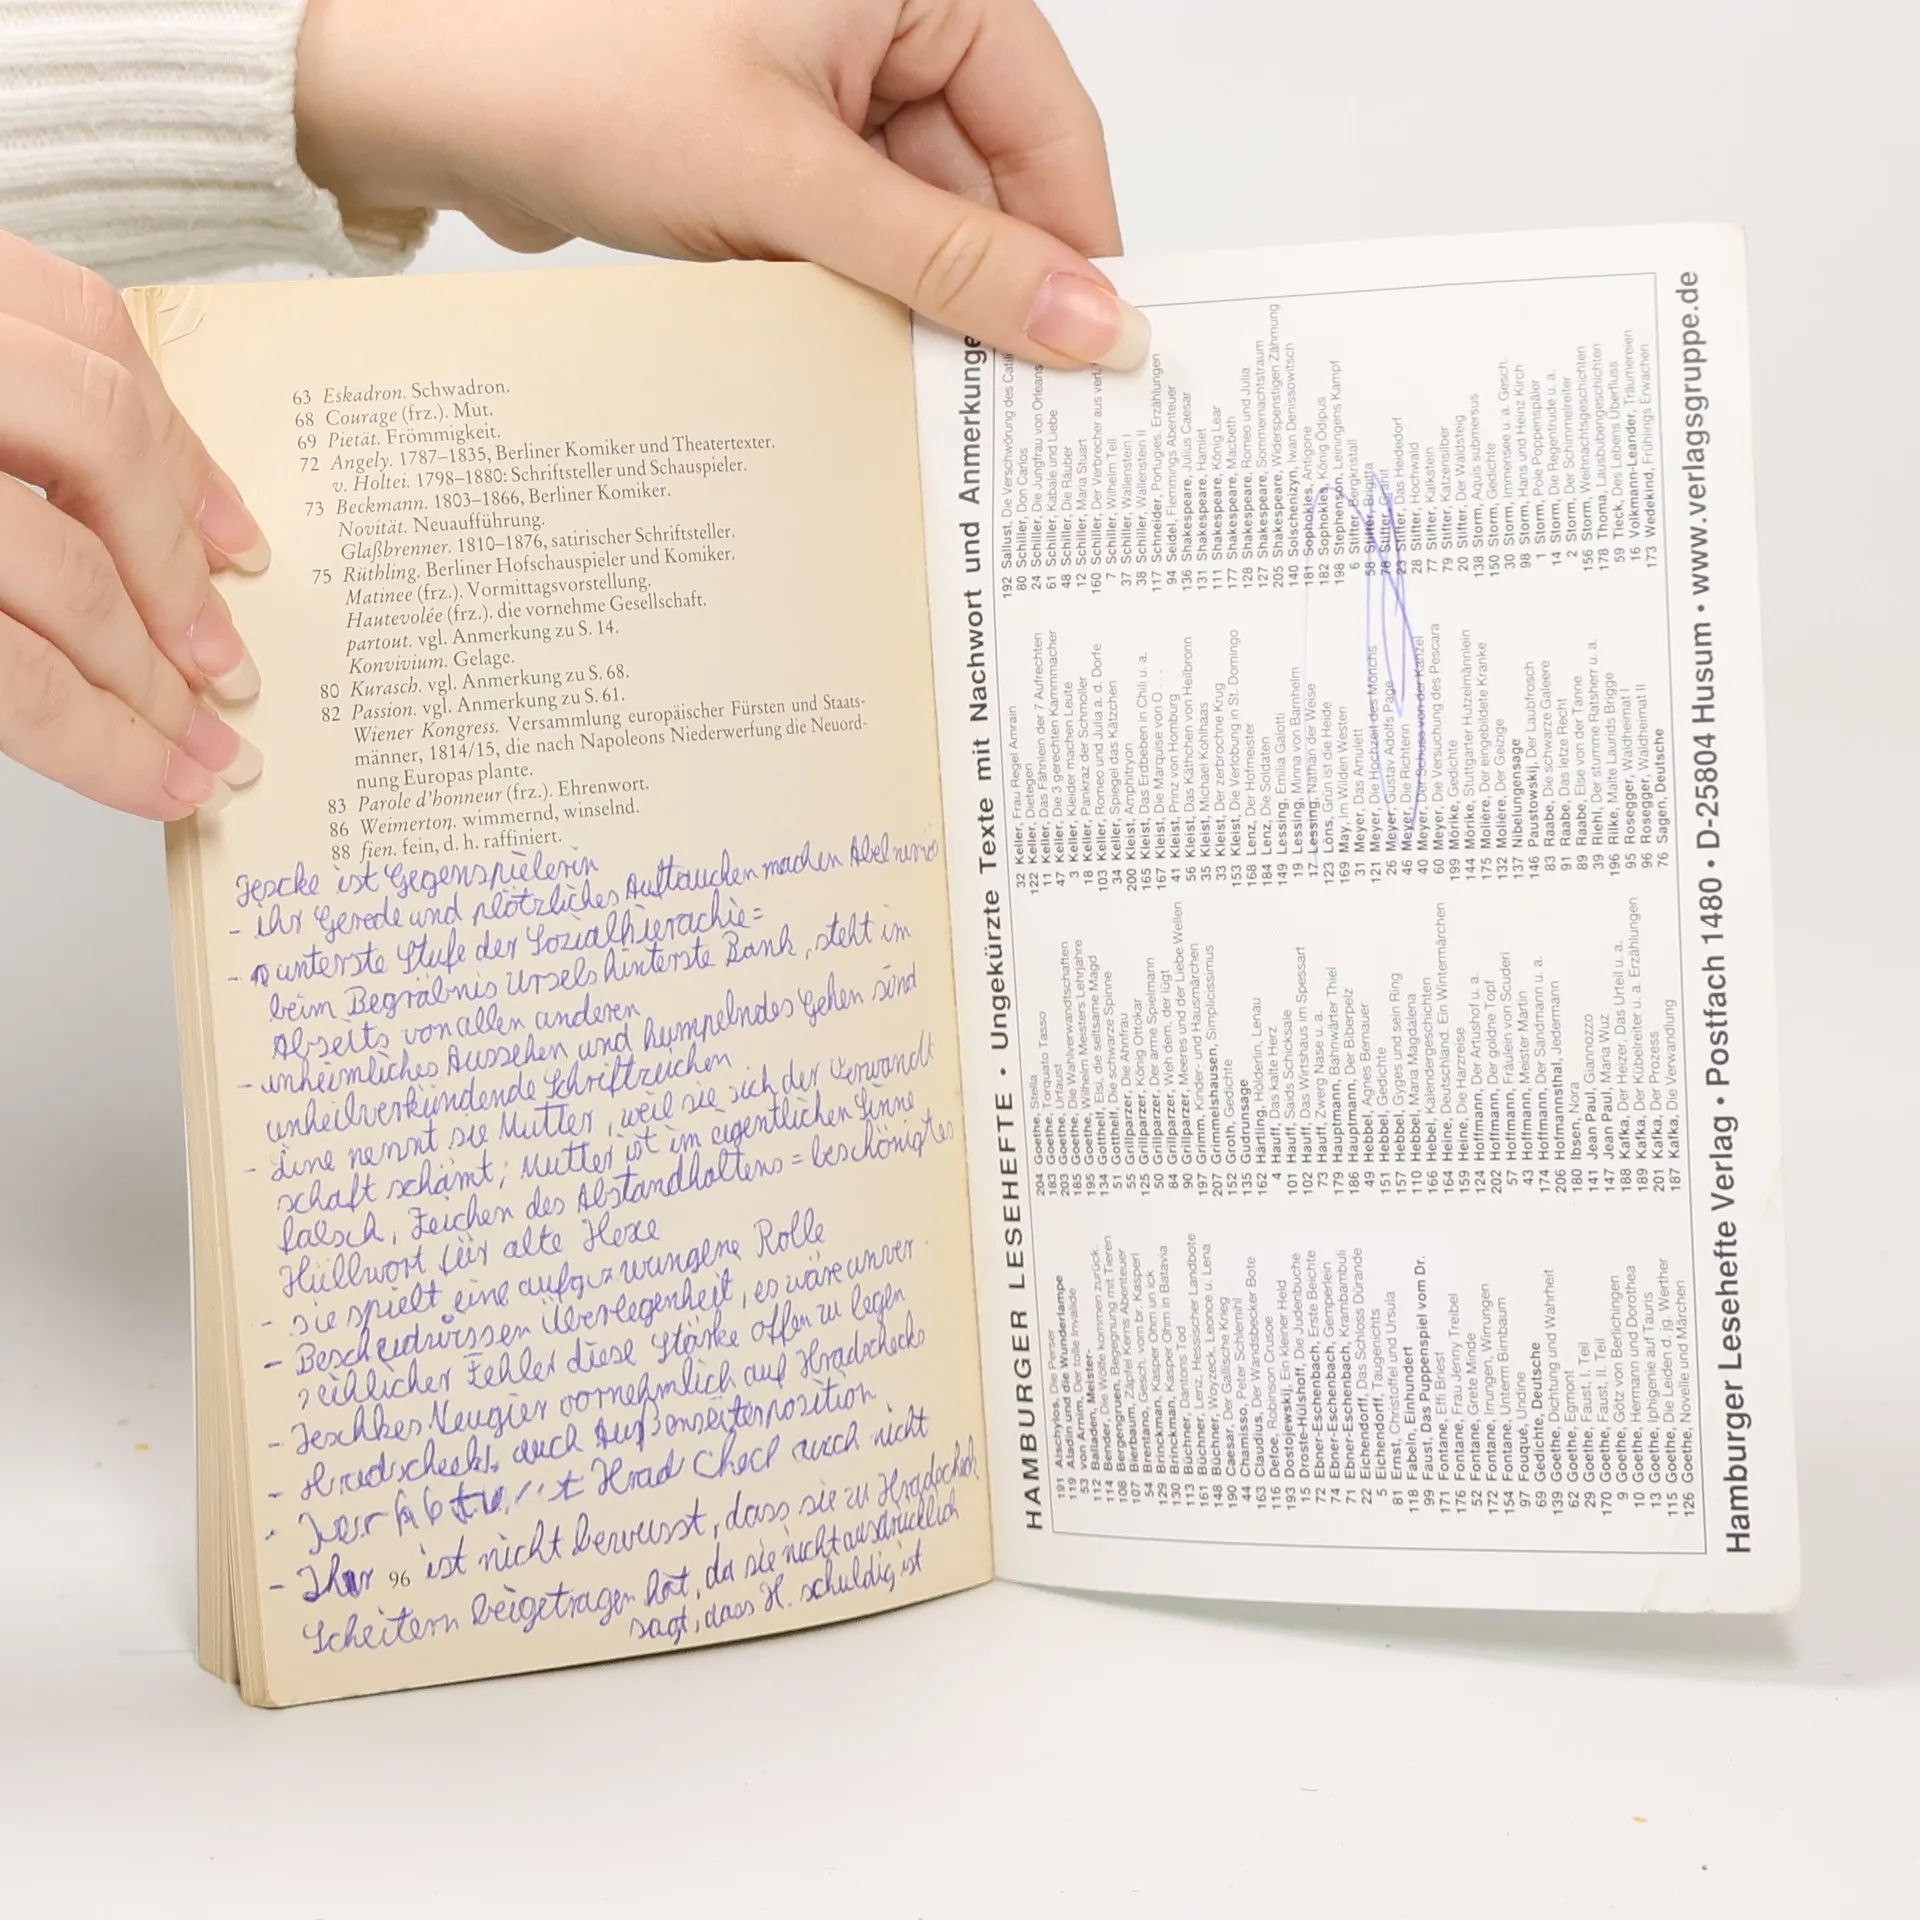 63 Eskadron. Schwadron.
68 Courage (frz.). Mut.
69 Pietät. Frömmigkeit.
72 Angely. 1787–1835, Berliner Komiker und Theatertexter.
v. Holtei. 1798–1880: Schriftsteller und Schauspieler.
73 Beckmann. 1803–1866, Berliner Komiker.
Novität. Neuaufführung.
Glaßbrenner. 1810–1876, satirischer Schriftsteller.
75 Rüthling. Berliner Hofschauspieler und Komiker.
Matinee (frz.). Vormittagsvorstellung.
Hautevolée (frz.). die vornehme Gesellschaft.
partout. vgl. Anmerkung zu S. 14.
Konvivium. Gelage.
80 Kurasch. vgl. Anmerkung zu S. 68.
82 Passion. vgl. Anmerkung zu S. 61.
Wiener Kongress. Versammlung europäischer Fürsten und Staats-
männer, 1814/15, die nach Napoleons Niederwerfung die Neuord-
nung Europas plante.
83 Parole d'honneur (frz.). Ehrenwort.
86 Weimerton. wimmernd, winselnd.
88 fien. fein, d. h. raffiniert.
Jescke ist Gegenspielerin
- ihr Gerede und plötzliches Auftauchen machen Abel
- unterste Stufe der Sozialhierachie=
beim Begräbnis Ursels hinterste Bank, steht im
Abseits von allen anderen
- unheimliches Aussehen und humpelndes Gehen sind
unheilverkündende Schriftzeichen
- Line nennt sie Mutter, weil sie sich der Verwandt
schaft schämt; Mutter ist im eigentlichen Sinne
falsch, Zeichen des Abstandhaltens = beschönigtes
Hüllwort für alte Hexe
- sie spielt eine aufgezwungene Rolle
- Bescheidwissen Überlegenheit, es wäre unver-
zeihlicher Fehler diese Stärke offen zu legen
- Jeschkes Neugier vornehmlich auf Hradschecks
- Hradscheck auch Außenseiterposition
- auch nicht
- Ihr ist nicht bewusst, dass sie zu Hradscheck
96
Scheitern beigetragen hat, da sie nicht ausdrücklich
sagt, dass H. schuldig ist
HAMBURGER LESEHEFTE • Ungekürzte Texte mit Nachwort und Anmerkunge
191 Aischylos, Die Perser
119 Aladin und die Wunderlampe
53 von Arnim, Der tolle Invalide
112 Balladen, Meister-
114 Bender, Die Wölfe kommen zurück.
108 Bergengruen, Begegnung mit Tieren
107 Bierbaum, Zäpfel Kerns Abenteuer
54 Brentano, Gesch. vom br. Kasperl
129 Brinckman, Kasper Ohm un ick
130 Brinckman, Kasper Ohm in Batavia
113 Büchner, Dantons Tod
161 Büchner, Lenz. Hessischer Landbote
148 Büchner, Woyzeck. Leonce u. Lena
190 Caesar, Der Gallische Krieg
44 Chamisso, Peter Schlemihl
163 Claudius, Der Wandsbecker Bote
116 Defoe, Robinson Crusoe
193 Dostojewskij, Ein kleiner Held
15 Droste-Hülshoff, Die Judenbuche
72 Ebner-Eschenbach, Erste Beichte
74 Ebner-Eschenbach, Gemperlein
71 Ebner-Eschenbach, Krambambuli
22 Eichendorff, Das Schloss Dürande
5 Eichendorff, Taugenichts
81 Ernst, Christoffel und Ursula
118 Fabeln, Einhundert
99 Faust, Das Puppenspiel vom Dr.
171 Fontane, Effi Briest
176 Fontane, Frau Jenny Treibel
52 Fontane, Grete Minde
172 Fontane, Irrungen, Wirrungen
154 Fontane, Unterm Birnbaum
97 Fouqué, Undine
69 Gedichte, Deutsche
139 Goethe, Dichtung und Wahrheit
62 Goethe, Egmont
29 Goethe, Faust, I. Teil
170 Goethe, Faust, II. Teil
9 Goethe, Götz von Berlichingen
10 Goethe, Hermann und Dorothea
13 Goethe, Iphigenie auf Tauris
115 Goethe, Die Leiden d. jg. Werther
126 Goethe, Novelle und Märchen
204 Goethe, Stella
183 Goethe, Torquato Tasso
203 Goethe, Urfaust
185 Goethe, Die Wahlverwandtschaften
195 Goethe, Wilhelm Meisters Lehrjahre
134 Gotthelf, Elsi, die seltsame Magd
51 Gotthelf, Die schwarze Spinne
55 Grillparzer, Die Ahnfrau
125 Grillparzer, König Ottokar
50 Grillparzer, Der arme Spielmann
84 Grillparzer, Weh dem, der lügt
90 Grillparzer, Meeres und der Liebe Wellen
197 Grimm, Kinder- und Hausmärchen
207 Grimmelshausen, Simplicissimus
152 Groth, Gedichte
135 Gudrunsage
162 Härtling, Hölderlin, Lenau
4 Hauff, Das kalte Herz
101 Hauff, Saids Schicksale
102 Hauff, Das Wirtshaus im Spessart
73 Hauff, Zwerg Nase u. a.
179 Hauptmann, Bahnwärter Thiel
186 Hauptmann, Der Biberpelz
49 Hebbel, Agnes Bernauer
151 Hebbel, Gedichte
157 Hebbel, Gyges und sein Ring
110 Hebbel, Maria Magdalena
166 Hebel, Kalendergeschichten
164 Heine, Deutschland. Ein Wintermärchen
159 Heine, Die Harzreise
124 Hoffmann, Der Artushof u. a.
202 Hoffmann, Der goldne Topf
57 Hoffmann, Fräulein von Scuderi
43 Hoffmann, Meister Martin
174 Hoffmann, Der Sandmann u. a.
206 Hofmannsthal, Jedermann
180 Ibsen, Nora
141 Jean Paul, Giannozzo
147 Jean Paul, Maria Wuz
188 Kafka, Der Heizer, Das Urteil u. a.
189 Kafka, Der Kübelreiter u. a. Erzählungen
201 Kafka, Der Prozess
187 Kafka, Die Verwandlung
32 Keller, Frau Regel Amrain
122 Keller, Dietegen
11 Keller, Das Fähnlein der 7 Aufrechten
47 Keller, Die 3 gerechten Kammmacher
3 Keller, Kleider machen Leute
18 Keller, Pankraz der Schmoller
103 Keller, Romeo und Julia a. d. Dorfe
34 Keller, Spiegel das Kätzchen
200 Kleist, Amphitryon
165 Kleist, Das Erdbeben in Chili u. a.
167 Kleist, Die Marquise von O . . .
41 Kleist, Prinz von Homburg
56 Kleist, Das Käthchen von Heilbronn
35 Kleist, Michael Kohlhaas
33 Kleist, Der zerbrochne Krug
153 Kleist, Die Verlobung in St. Domingo
168 Lenz, Der Hofmeister
184 Lenz, Die Soldaten
149 Lessing, Emilia Galotti
19 Lessing, Minna von Barnhelm
17 Lessing, Nathan der Weise
123 Löns, Grün ist die Heide
169 May, Im Wilden Westen
31 Meyer, Das Amulett
121 Meyer, Die Hochzeit des Mönchs
26 Meyer, Gustav Adolfs Page
46 Meyer, Die Richterin
40 Meyer, Der Schuss von der Kanzel
60 Meyer, Die Versuchung des Pescara
199 Mörike, Gedichte
144 Mörike, Stuttgarter Hutzelmännlein
175 Molière, Der eingebildete Kranke
132 Molière, Der Geizige
137 Nibelungensage
146 Paustowskij, Der Laubfrosch
83 Raabe, Die schwarze Galeere
91 Raabe, Das letzte Recht
89 Raabe, Else von der Tanne
39 Riehl, Der stumme Ratsherr u. a.
196 Rilke, Malte Laurids Brigge
95 Rosegger, Waldheimat I
96 Rosegger, Waldheimat II
76 Sagen, Deutsche
192 Sallust, Die Verschwörung des Catili
80 Schiller, Don Carlos
24 Schiller, Die Jungfrau von Orleans
61 Schiller, Kabale und Liebe
48 Schiller, Die Räuber
12 Schiller, Maria Stuart
160 Schiller, Der Verbrecher aus verl.
7 Schiller, Wilhelm Tell
37 Schiller, Wallenstein I
38 Schiller, Wallenstein II
117 Schneider, Portugies. Erzählungen
94 Seidel, Flemmings Abenteuer
136 Shakespeare, Julius Caesar
131 Shakespeare, Hamlet
111 Shakespeare, König Lear
177 Shakespeare, Macbeth
128 Shakespeare, Romeo und Julia
127 Shakespeare, Sommernachtstraum
205 Shakespeare, Widerspenstigen Zähmung
140 Solschenizyn, Iwan Denissowitsch
181 Sophokles, Antigone
182 Sophokles, König Ödipus
198 Stephenson, Leiningens Kampf
6 Stifter, Bergkristall
58 Stifter, Brigitta
78 Stifter, Granit
23 Stifter, Das Heidedorf
28 Stifter, Hochwald
77 Stifter, Kalkstein
79 Stifter, Katzensilber
20 Stifter, Der Waldsteig
138 Storm, Aquis submersus
150 Storm, Gedichte
30 Storm, Immensee u. a. Gesch.
98 Storm, Hans und Heinz Kirch
1 Storm, Pole Poppenspäler
14 Storm, Die Regentrude u. a.
2 Storm, Der Schimmelreiter
156 Storm, Weihnachtsgeschichten
178 Thoma, Lausbubengeschichten
59 Tieck, Des Lebens Überfluss
16 Volkmann-Leander, Träumereien
173 Wedekind, Frühlings Erwachen
Hamburger Lesehefte Verlag • Postfach 1480 • D-25804 Husum • www.verlagsgruppe.de